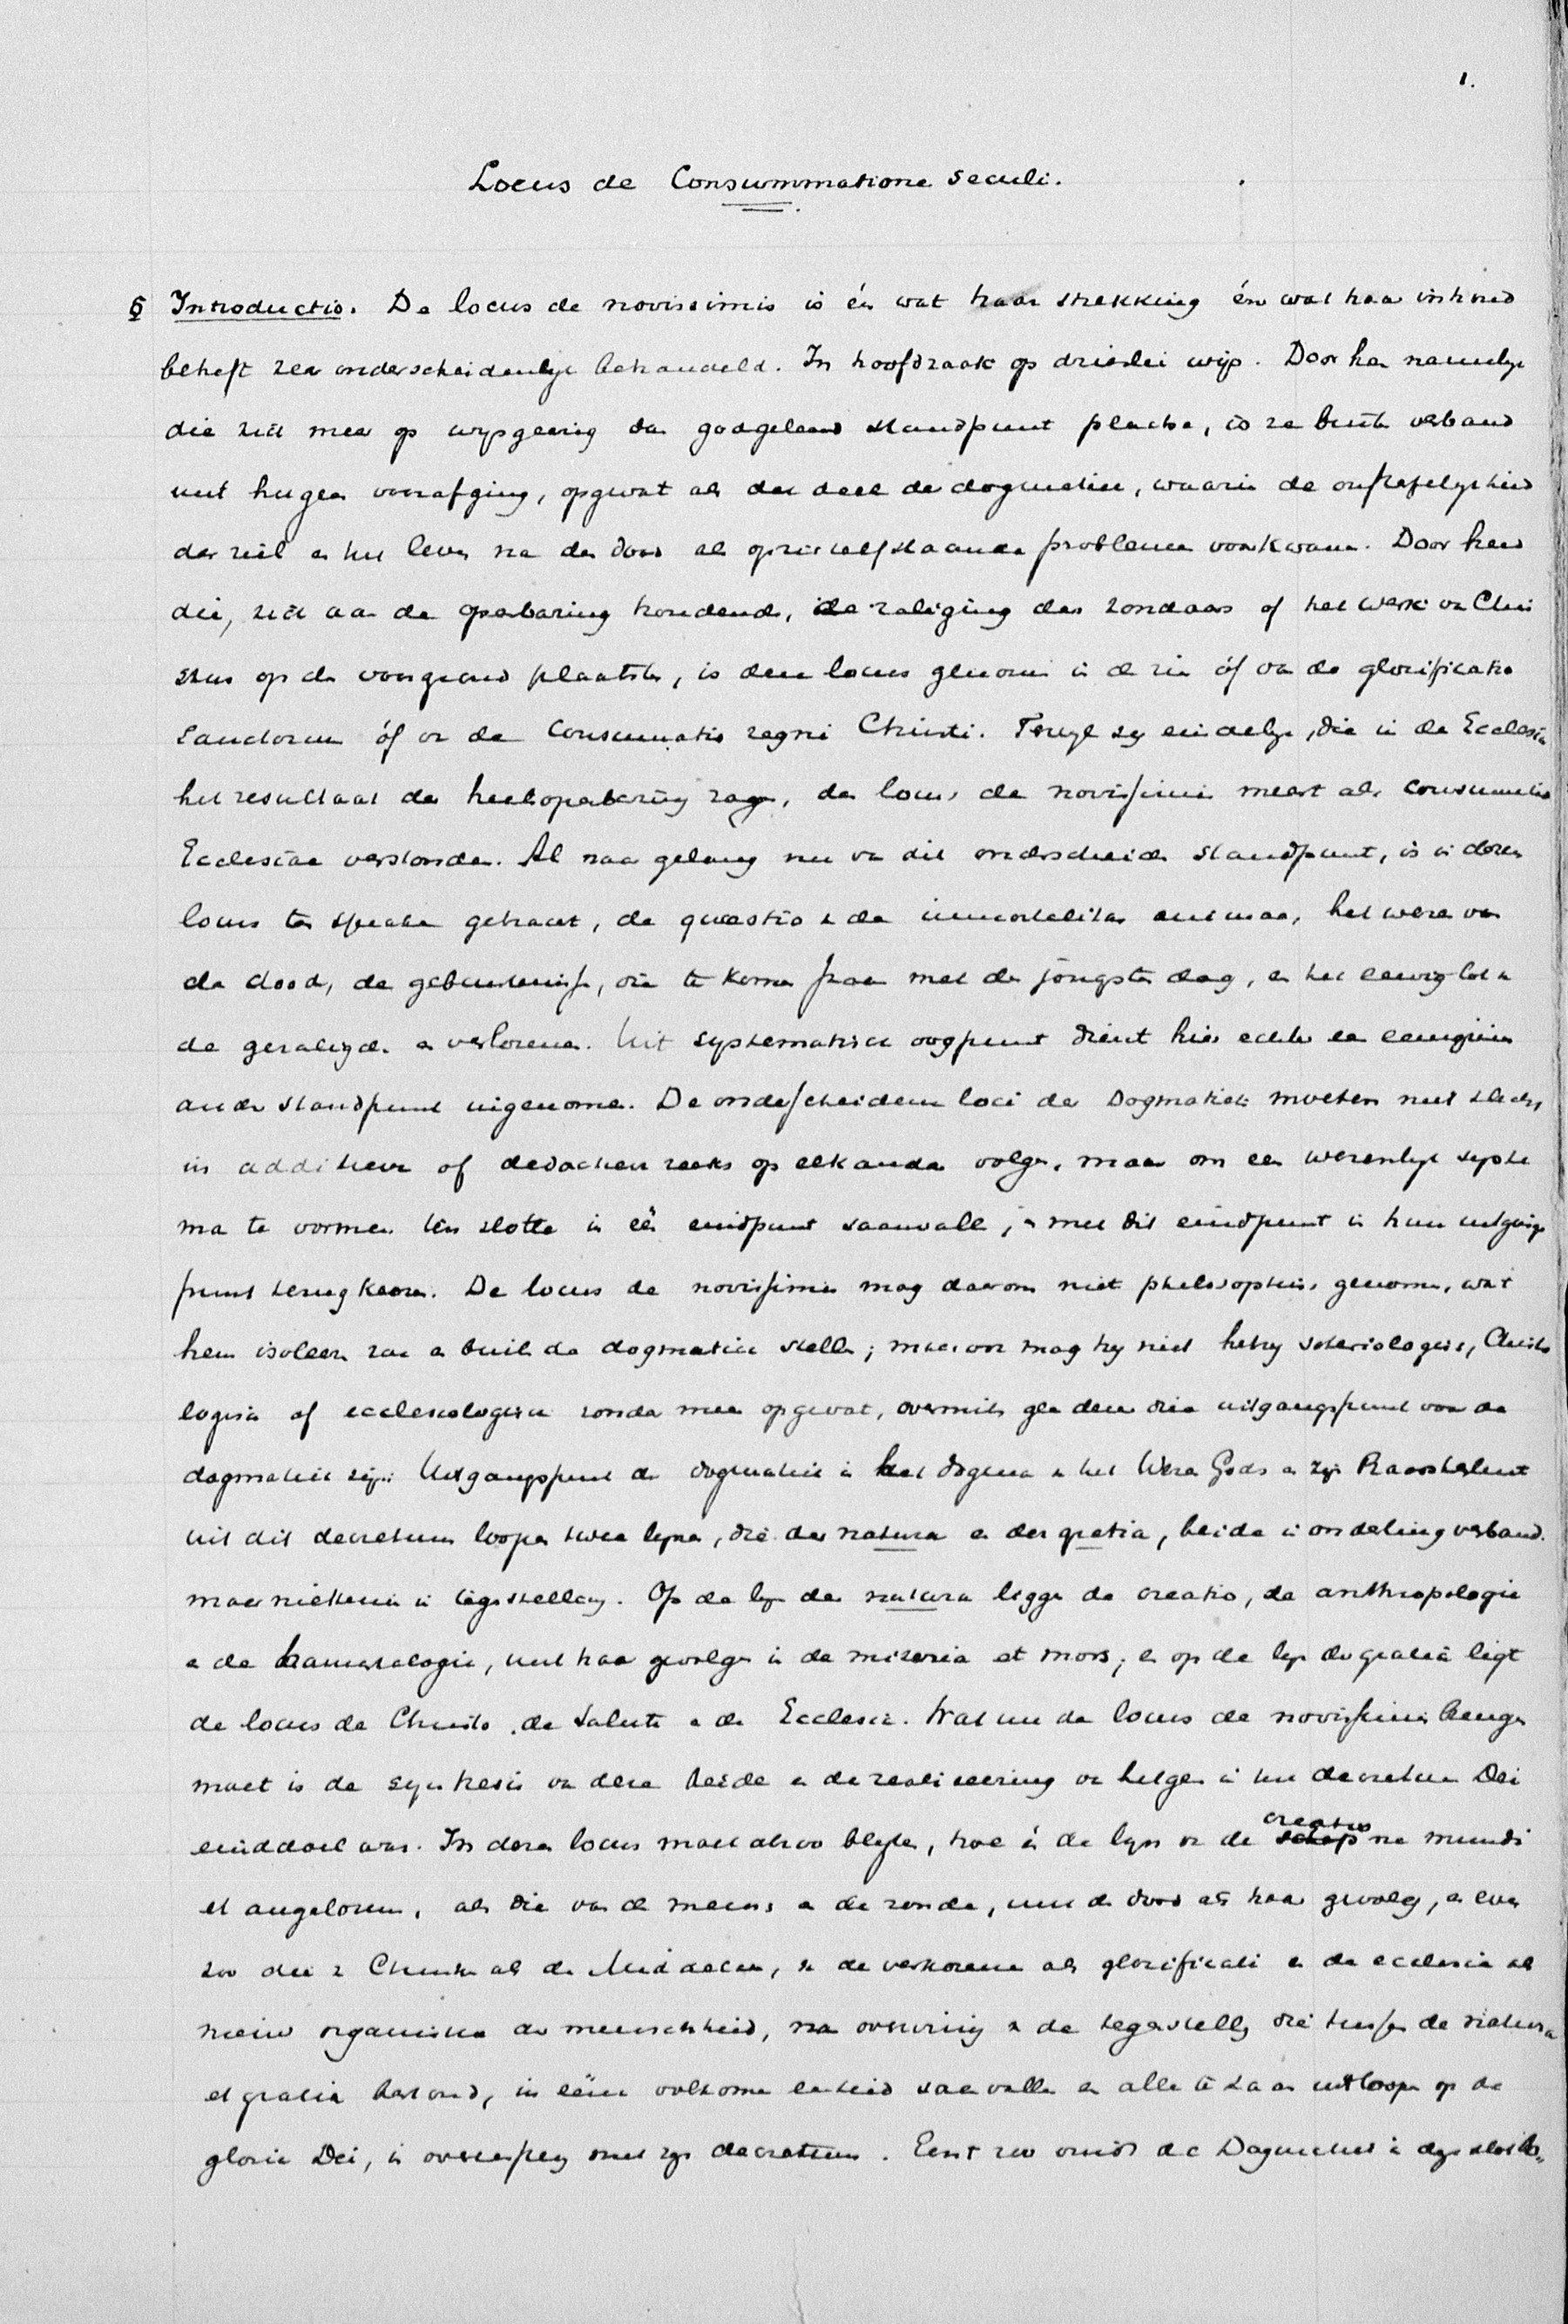 1.
Locus de Consummatione seculi.
§ Introductio. De locus de novissimis is én wat haar strekking én wat haar inhoud
betreft zeer onderscheidenlijk behandeld. In hoofdzaak op drieërlei wijs. Door hen namelijk
die zich meer op wijsgeerig dan godgeleerd standpunt plaatsten, is ze buiten verband
met hetgeen voorafging, opgevat als dat deel der dogmatiek, waarin de onsterfelijkheid
der ziel en het leven na den dood als opzichzelfstaande problemen voorkwam. Door hen
die, zich aan de openbaring houdend, de zaliging des zondaars of het werk van Chri
stus op den voorgrond plaatsten, is deze locus genomen in de zin óf van de glorificatio
Sanctorum óf van de Consummatio regni Christi. Terwijl zij eindelijk, die in de Ecclesia
het resultaat der heilsopenbaring zagen, den locus de novissimis meest als consummatio
Ecclesiae verstonden. Al naar gelang nu van dit onderscheiden standpunt, is in dezen
locus ter sprake gebracht, de quaestio van de immortalitas animae, het wezen van
de dood, de gebeurtenissen, die te komen staan met den jongsten dag, en het eeuwig lot van
de gezaligden en verlorenen. Uit systematisch oogpunt dient hier echter een eenigszins
ander standpunt ingenomen. De onderscheidene loci der Dogmatiek moeten niet slechts
in additieve of reeks op elkander volgen, maar om een wezenlijk syste
ma te vormen ten slotte in één eindpunt saamvallen, en met dit eindpunt in hun uitgangs
punt terugkeeren. De locus de novissimis mag daarom niet philosophisch genomen, wat
hem isoleeren zou en buiten de dogmatiek stellen; maar ook mag hij niet hetzij soteriologisch, Christo
logisch of ecclesiologisch zonder meer opgevat, overmits geen dezer drie uitgangspunt voor de
dogmatiek zijn. Uitgangspunt der dogmatiek is het dogma van het Wezen Gods en zijn Raadsbesluit
uit dit decretum loopen twee lijnen, die der natura en der gratia, beide in onderling verband
maar niettemin in tegenstelling. Op de lijn der natura liggen de creatio, de anthropologie
en de hamartologie, met haar gevolgen in de miseria et mors; en op de lijn der gratia ligt
de locus de Christo, de Salute en de Ecclesia. Wat nu de locus de novissimis brengen
moet is de synthesis van deze beide en de realiseering van hetgeen in het decretum Dei
einddoel was. In dezen locus moet alzoo blijken, hoe én de lijn van de creatione mundi
et angelorum, als die van de mensch en de zonde, met de dood als haar gevolg, en even
zoo die van Christus als de Middelaar, van de verkorenen als glorificati en de ecclesia als
nieuw organisme der menschheid, na overwinning van de tegenstelling die tusschen de natura
et gratia bestond, in ééne volkomen eenheid saamvallen en alle te zaam uitloopen op de
gloria Dei, in overeenstemming met zijn decretum. Eerst zoo vindt de Dogmatiek in